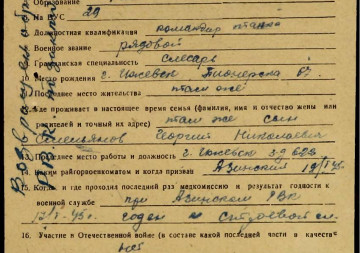 Образование
На ВУС 39
Должностная квалификация командир танка
Военное звание рядовой
Гражданская специальность слесарь
10. Место рождения г. Ижевск Пионерская
Последнее место жительства там же
где проживает в настоящее время семья (фамилия, имя и отчество жены или
родителей и точный их адрес) там же сын
Георгий Николаевич
Последнее место работы и должность г. Ижевск з-д 622
Каким райгорвоенкоматом и когда призван Азинский
15. Когда и где проходил последний раз медкомиссию и результат годности к
военной службе при Азинском РВК
годен к строевой сл.
16. Участие в Отечественной войне (в составе какой последней части в качестве
нет